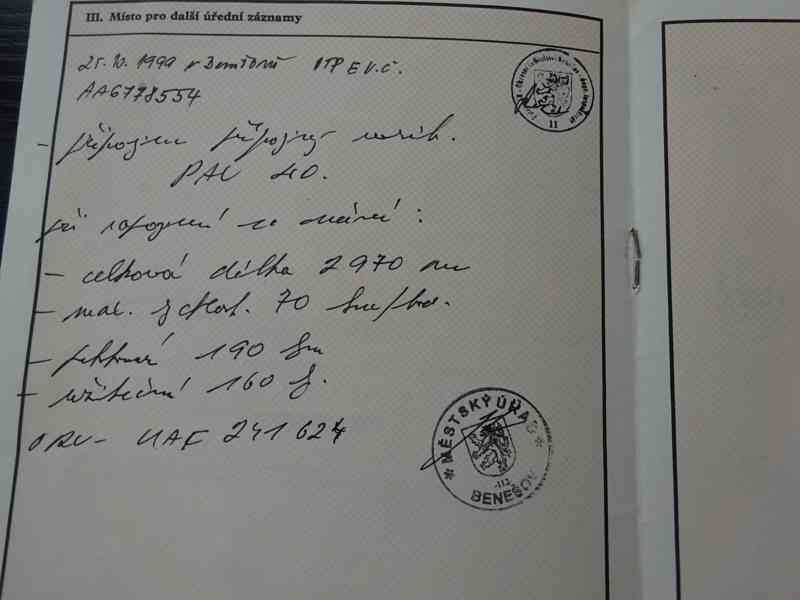 III. Místo pro další úřední záznamy
25. 10. 1999 v Benešově OTP E.V.Č.
AA6778554
- připojen přípojný vozík.
PAV 40.
při zapojení se mění:
- celková délka 2970 mm
- max. rychlost. 70 km/hod.
- 190
- užitečná 160
ORV- UAF 241624
MĚSTSKÝ ÚŘAD
112
BENEŠOV
11